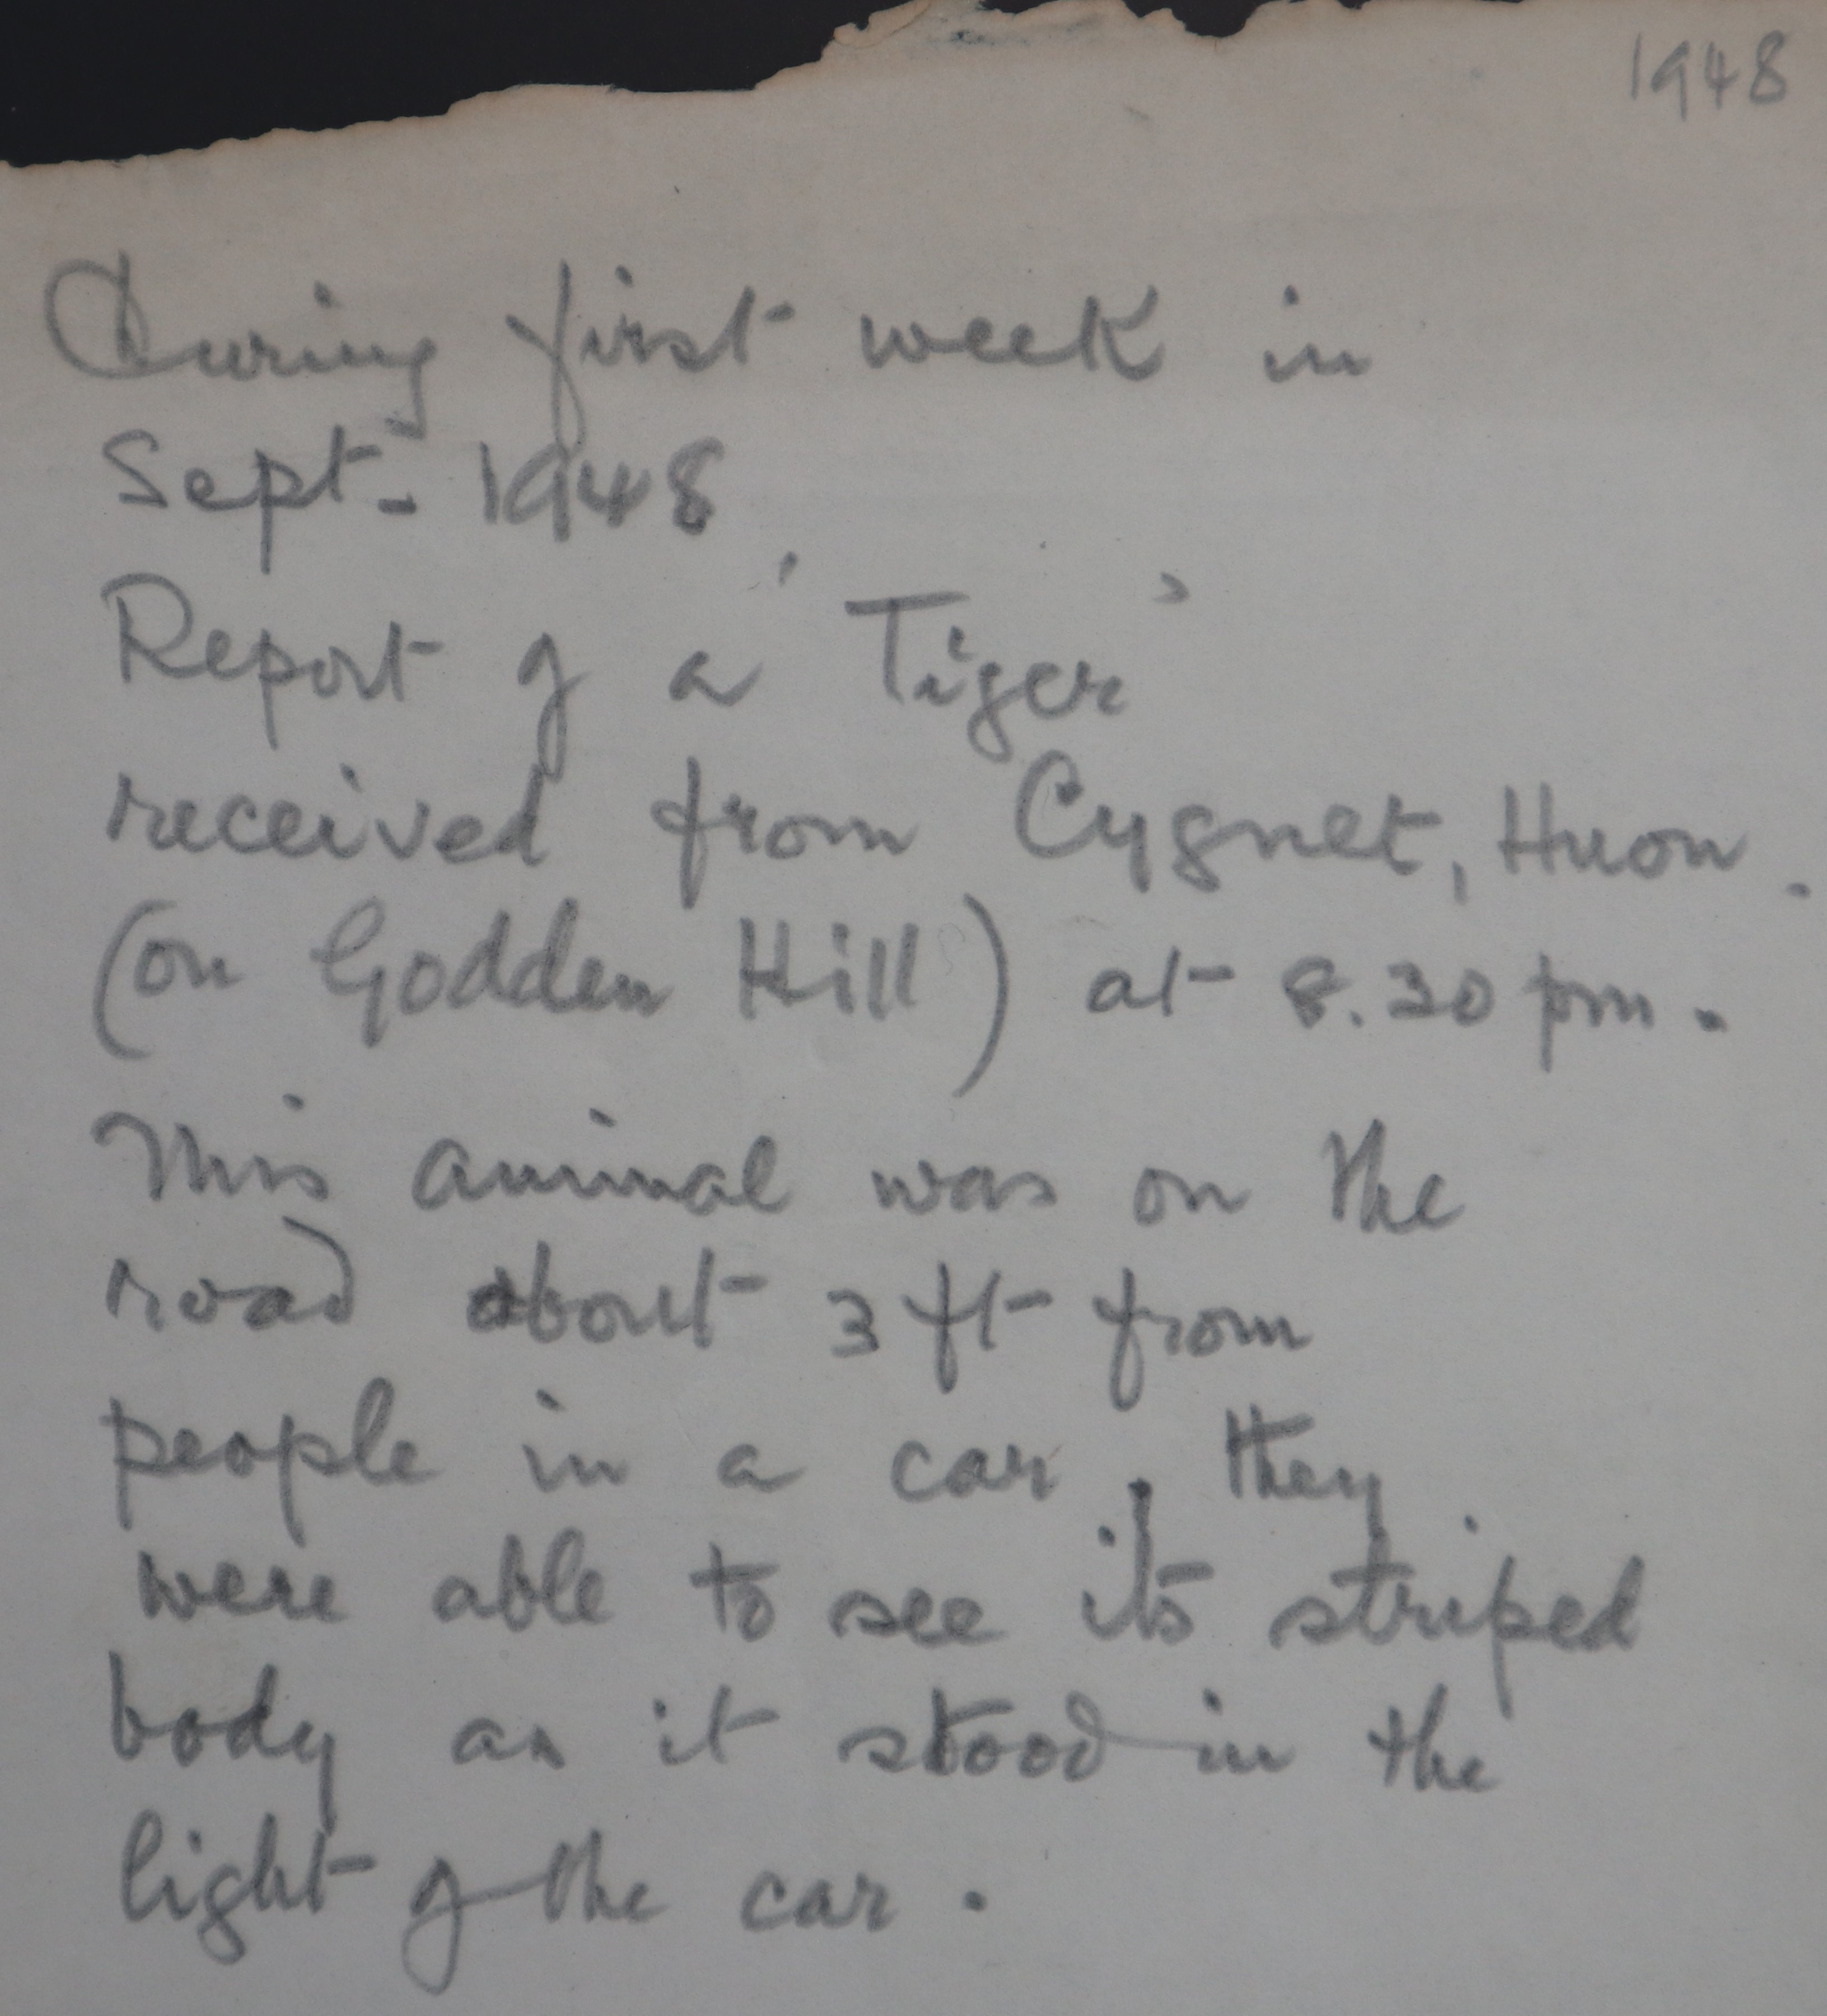 1948
During first week in
Sept. 1948
Report of a 'Tiger'
received from Cygnet, Huon.
(on Godden Hill) at 8.30 pm.
This animal was on the
road about 3 ft from
people in a car, they
were able to see its striped
body as it stood in the
light of the car.